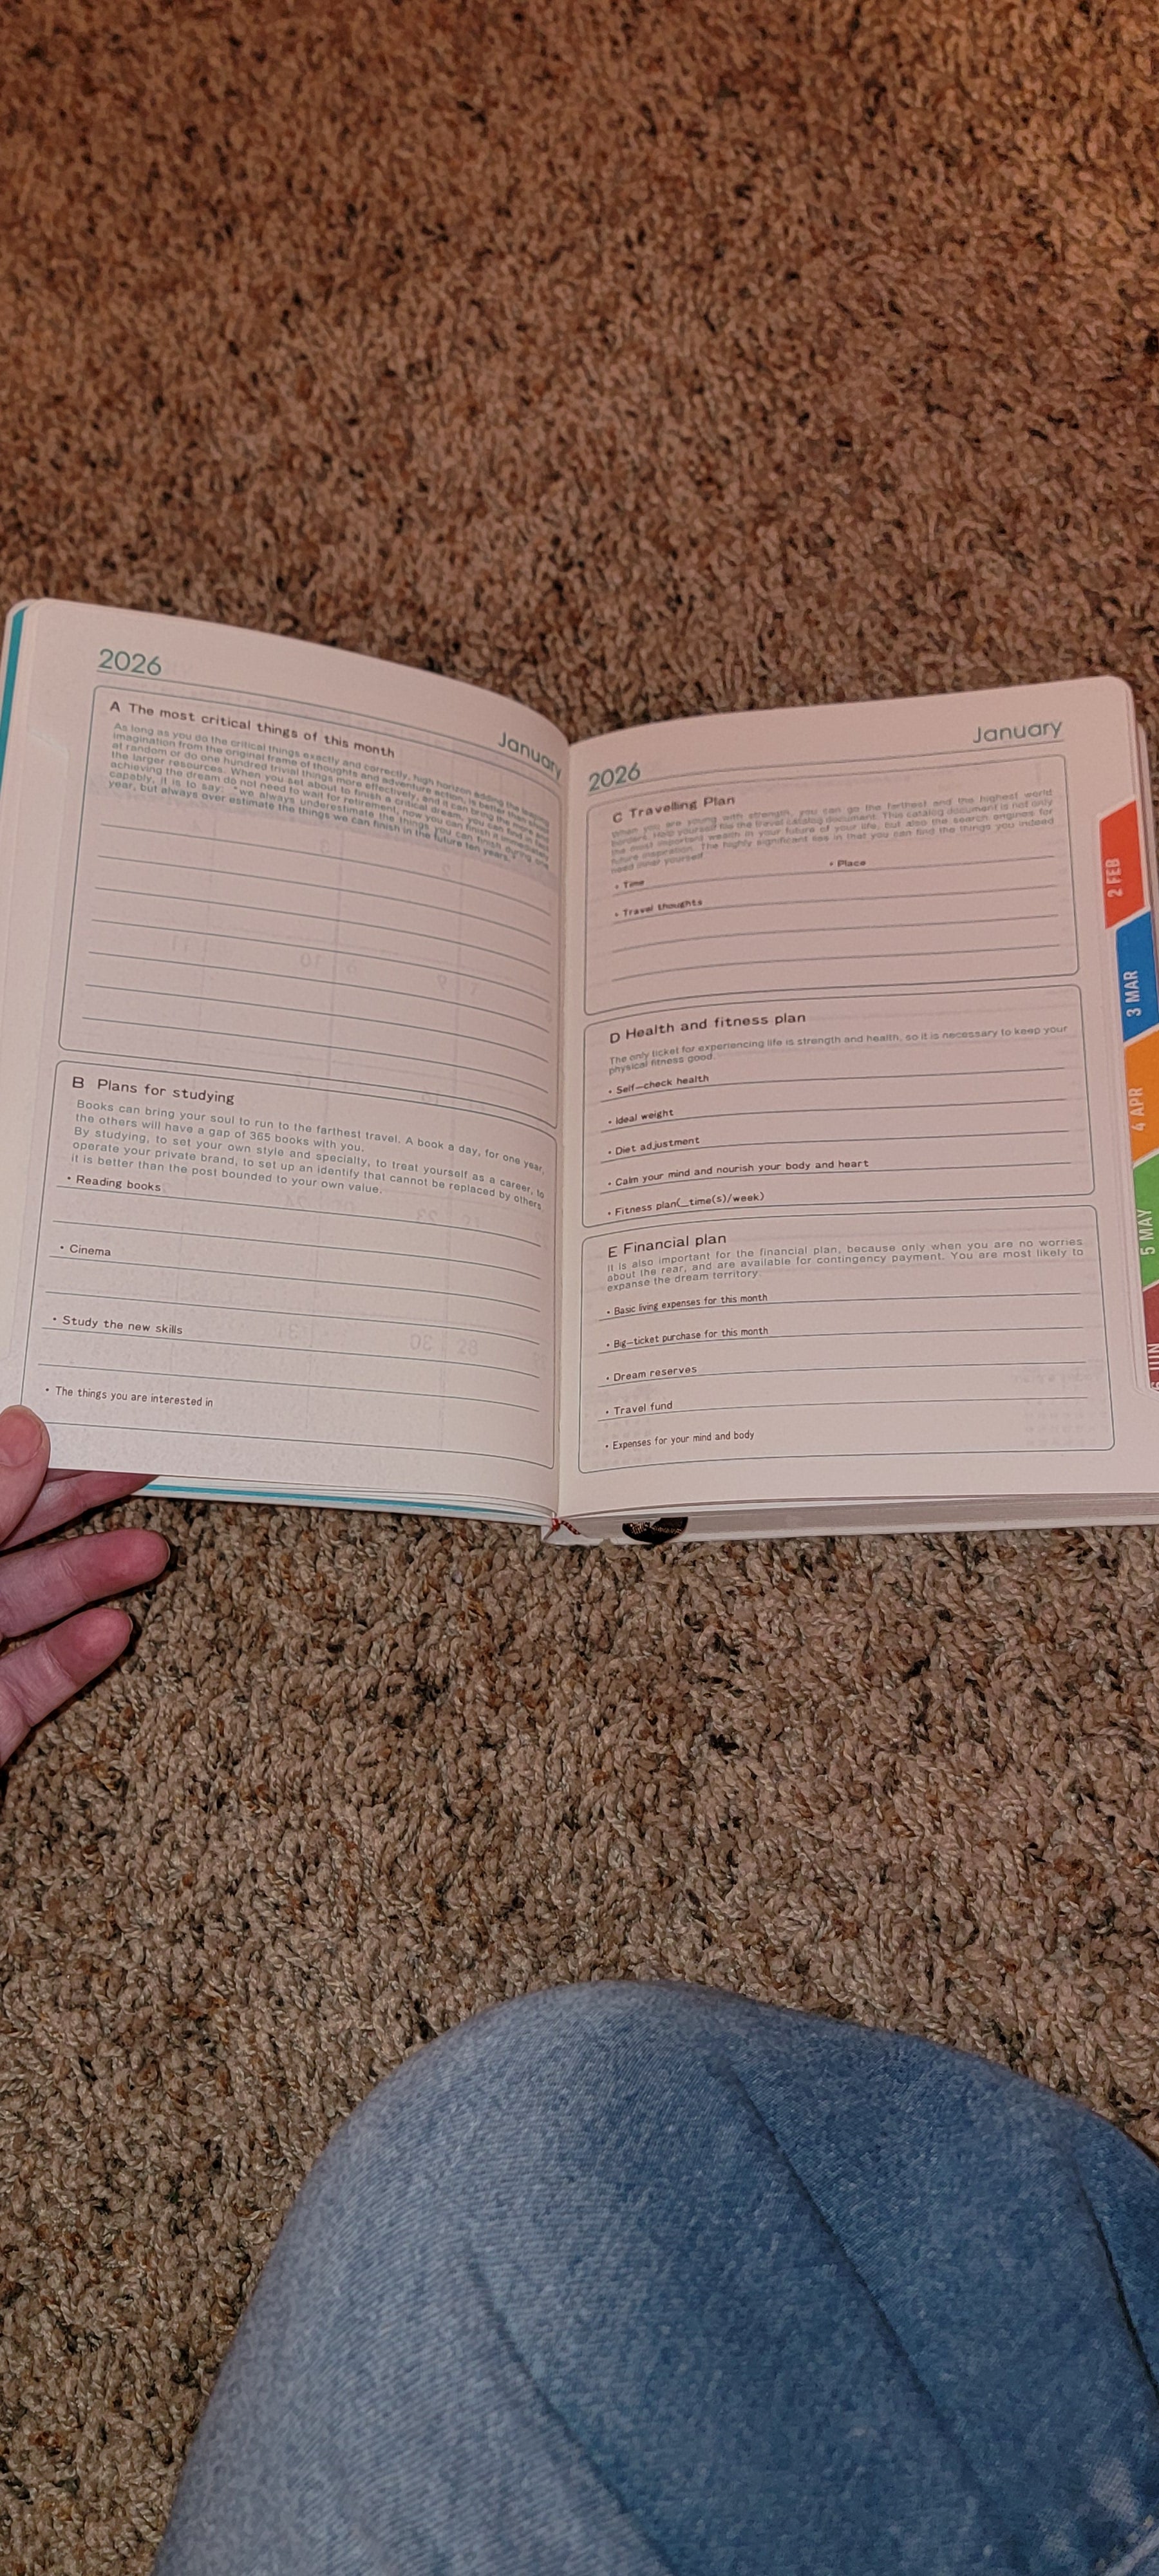 2026
January
A The most critical things of this month
As long as you do the critical things exactly and correctly, high horizon adding the
imagination from the original frame of thoughts and adventure action, is better than
at random or do one hundred trivial things more effectively, and it can bring the more and
the larger resources. When you set about to finish a critical dream, you can find
achieving the dream do not need to wait for retirement, now you can finish it immediately
capably, it is to say: "we always underestimate the things you can finish during one
year, but always over estimate the things we can finish in the future ten years."
B Plans for studying
Books can bring your soul to run to the farthest travel. A book a day, for one year,
the others will have a gap of 365 books with you.
By studying, to set your own style and specialty, to treat yourself as a career, to
operate your private brand, to set up an identify that cannot be replaced by others
it is better than the post bounded to your own value.
• Reading books
• Cinema
• Study the new skills
• The things you are interested in
2026
January
C Travelling Plan
When you are young with strength, you can go the farthest and the highest world
borders. Help yourself file the travel catalog document. This catalog document is not only
the most important wealth in your future of your life, but also the search engines for
future inspiration. The highly significant lies in that you can find the things you indeed
need inner yourself
• Time
• Place
• Travel thoughts
D Health and fitness plan
The only ticket for experiencing life is strength and health, so it is necessary to keep your
physical fitness good.
• Self-check health
• Ideal weight
• Diet adjustment
• Calm your mind and nourish your body and heart
• Fitness plan(_time(s)/week)
E Financial plan
It is also important for the financial plan, because only when you are no worries
about the rear, and are available for contingency payment. You are most likely to
expanse the dream territory.
• Basic living expenses for this month
• Big-ticket purchase for this month
• Dream reserves
• Travel fund
• Expenses for your mind and body
2 FEB
3 MAR
4 APR
5 MAY
JUN